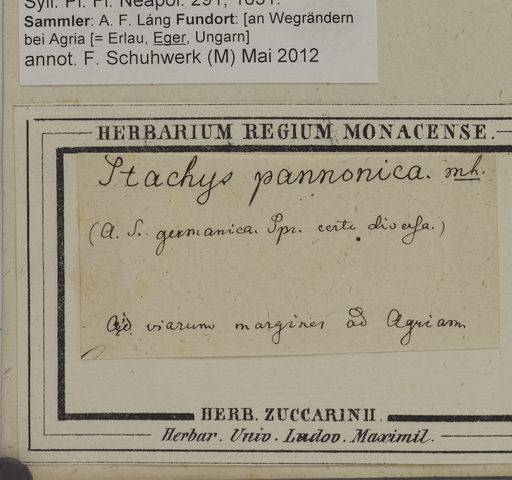 Syll. Pl. Fl. Neapol. 291, 1831.
Sammler: A. F. Láng Fundort: [an Wegrändern
bei Agria [= Erlau, Eger, Ungarn]
annot. F. Schuhwerk (M) Mai 2012
HERBARIUM REGIUM MONACENSE.
Stachys pannonica. mh.
(A. S. germanica. Spr. certe diversa.)
Ad viarum margines ad Agriam
HERB. ZUCCARINII.
Herbar. Univ. Ludov. Maximil.